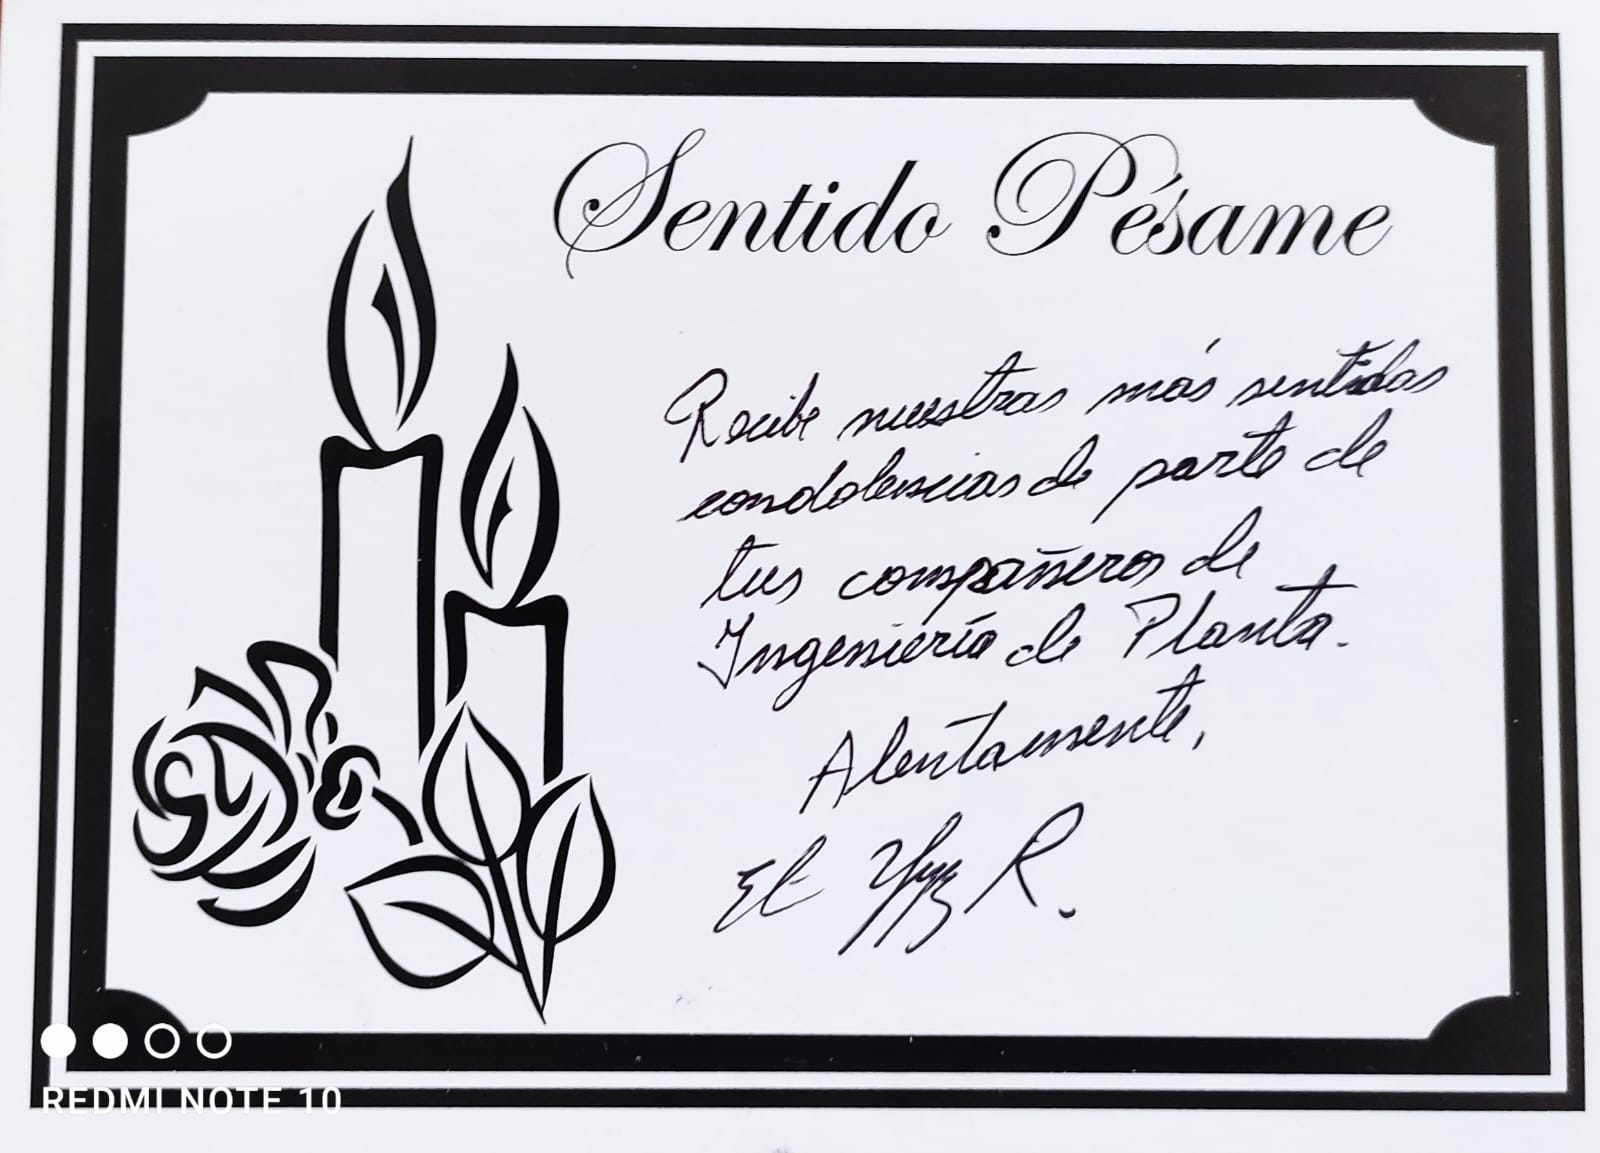 Sentido Pésame
Recibe nuestras más sentidas
condolencias de parte de
tus compañeros de
Ingeniería de Planta.
Atentamente,
El R.
REDMI NOTE 10